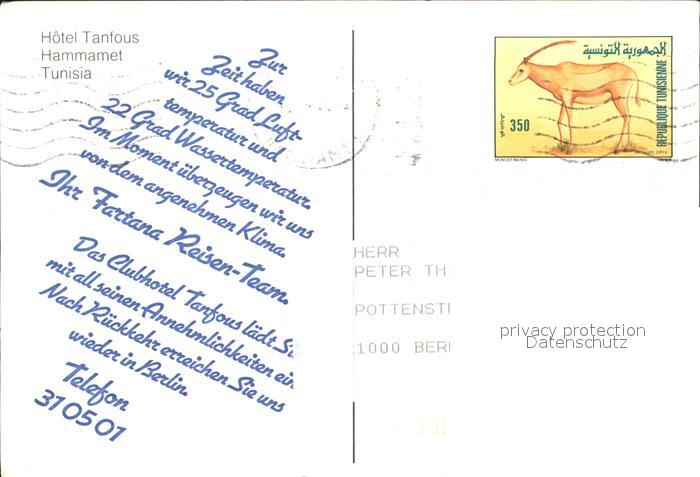 Hôtel Tanfous
Hammamet
Tunisia
Zur
Zeit haben
wir 25 Grad Luft-
temperatur und
22 Grad Wassertemperatur.
Im Moment überzeugen wir uns
von dem angenehmen Klima.
Ihr Fartana Reisen-Team.
Das Clubhotel Tanfous lädt Si
mit all seinen Annehmlichkeiten ein
Nach Rückkehr erreichen Sie uns
wieder in Berlin.
Telefon
31 05 01
الجمهورية التونسية
REPUBLIQUE TUNISIENNE
350
ORYX
HERR
PETER TH
POTTENSTE
1000 BERL
privacy protection
Datenschutz